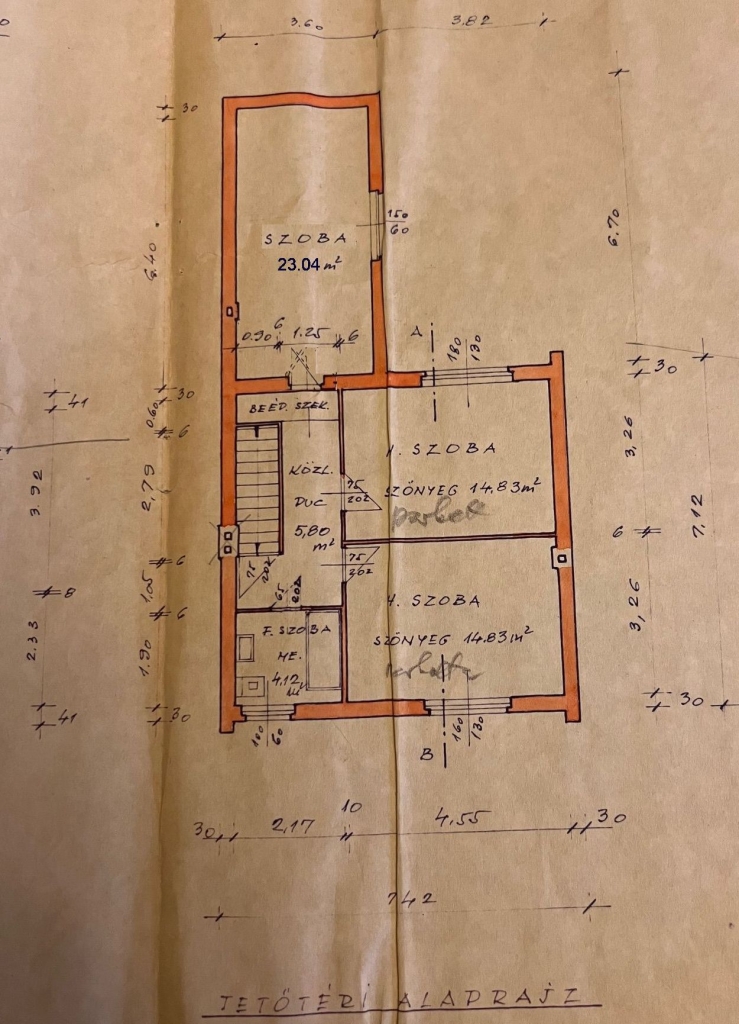 3.60
3.82
30
6.40
6.70
SZOBA
23.04 m²
150
60
0.90
6
1.25
6
A
180
130
30
41
30
0.60
6
BEÉP. SZEK.
3.92
2,79
3,26
1. SZOBA
KÖZL.
DUC
5,80
m²
75
202
SZŐNYEG 14.83m²
7,12
6
6
75
202
75
202
8
1.05
65
202
4. SZOBA
6
2.33
1.90
3,26
F. SZOBA
ME.
4,12
m²
SZŐNYEG 14.83m²
41
30
30
100
60
B
160
130
30
2,17
10
4,55
30
742
TETŐTÉRI ALAPRAJZ